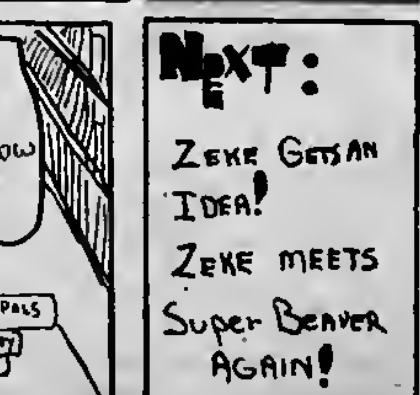 OW
PASS
NEXT:
ZEKE GETS AN
IDEA!
ZEKE MEETS
Super BEAVER
AGAIN!